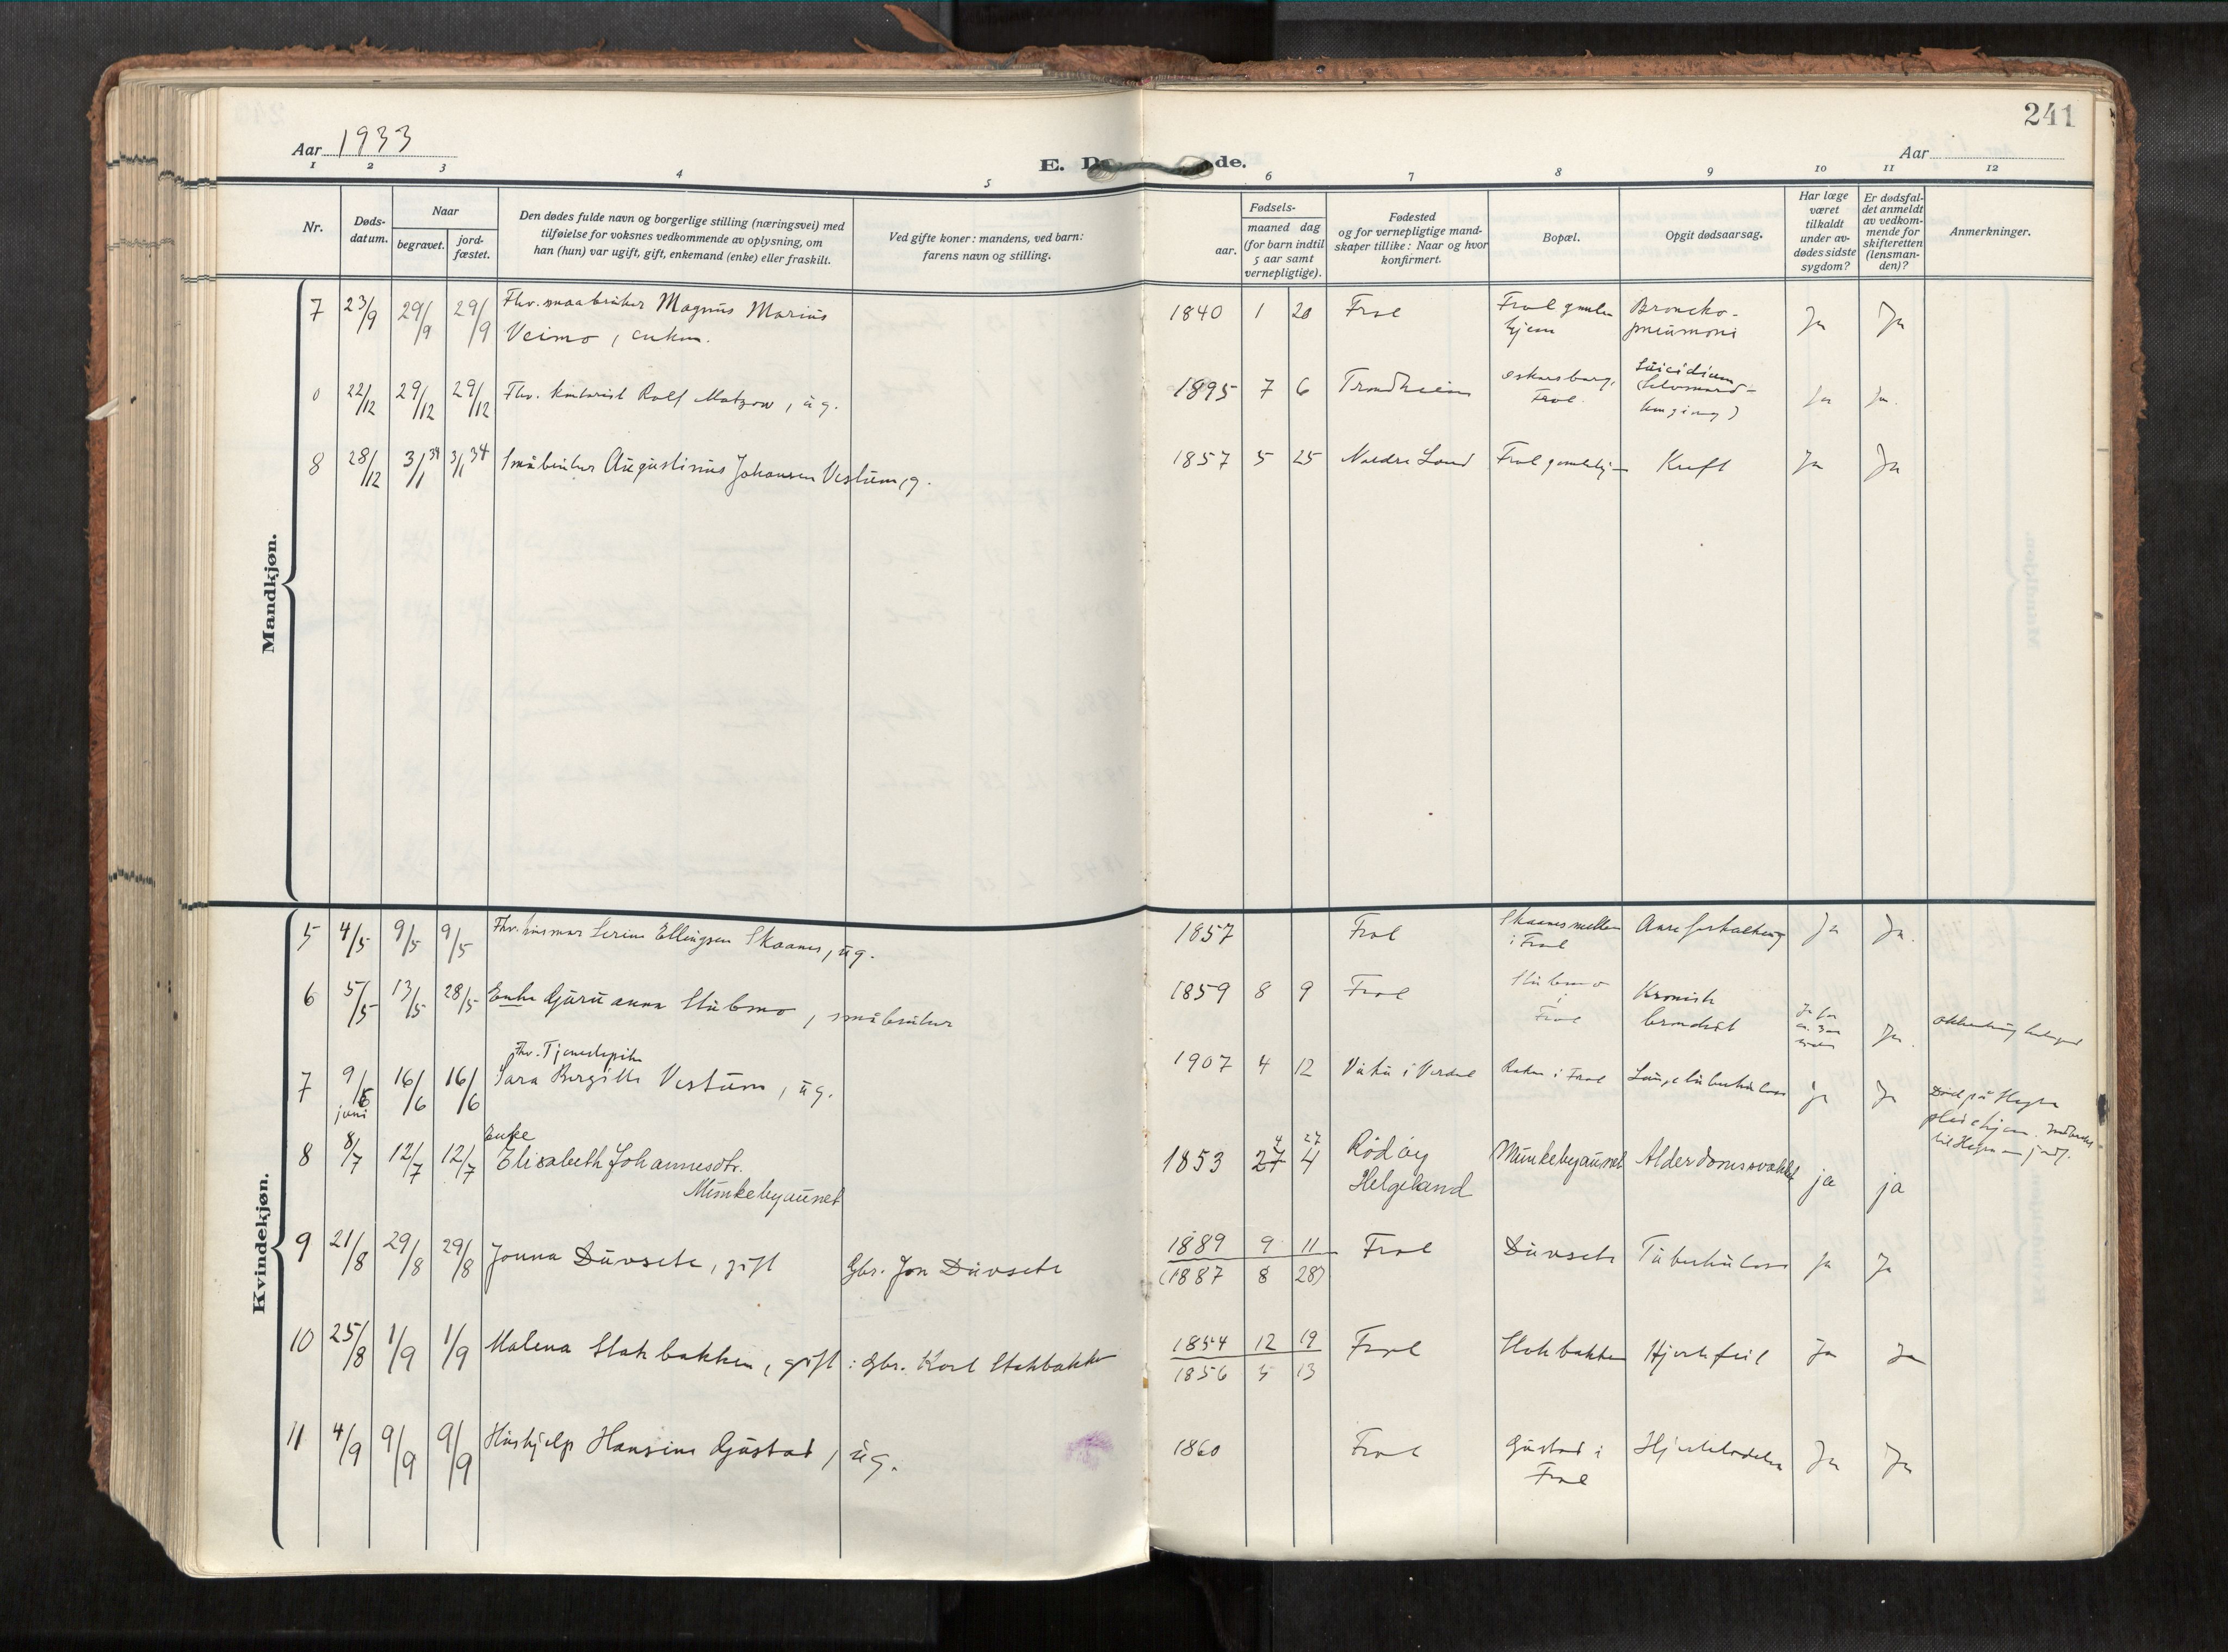 241
Aar 1933
E. D de.
Aar
1 2 3 4 5 6 7 8 9 10 11 12
Nr.
Døds-
datum.
Naar
begravet.
jord-
fæstet.
Den dødes fulde navn og borgerlige stilling (næringsvei) med
tilføielse for voksnes vedkommende av oplysning, om
han (hun) var ugift, gift, enkemand (enke) eller fraskilt.
Ved gifte koner: mandens, ved barn:
farens navn og stilling.
Fødsels-
aar.
maaned dag
(for barn indtil
5 aar samt
vernepligtige).
Fødested
og for vernepligtige mand-
skaper tillike: Naar og hvor
konfirmert.
Bopæl.
Opgit dødsaarsag.
Har læge
været
tilkaldt
under av-
dødes sidste
sygdom?
Er dødsfal-
det anmeldt
av vedkom-
mende for
skifteretten
(lensman-
den)?
Anmerkninger.
Mandkjøn.
7 23/9 29/9 29/9 Fhv. smaabruker Magnus Marius
Veimo, enkem.
1840 1 20 Frol Frol gamle
hjem
Broncko-
pneumoni
Ja Ja
0 22/12 29/12 29/12 Fhv. kontorist Rolf Matzow, ug.
1895 7 6 Trondheim Oskarsborg,
Frol.
Suicidium
(Selvmord-
hengning)
Ja Ja.
8 28/12 3/1 34 3/1 34 Småbruker Augustinus Johansen Vestum, g.
1857 5 25 Nordre Land Frol gamlehj Kreft Ja Ja
Kvindekjøn.
5 4/5 9/5 9/5 Fhv. Serine Ellingsen Skaanes, ug.
1857 Frol
i Frol
Aareforkalkning Ja Ja.
6 5/5 13/5 28/5 Enke Guru Anna Stubmo, småbruker
1859 8 9 Frol Stubmo
i
Frol
Kronisk
bronchit
Ja.
7 9/6 juni 16/6 16/6 Fhv. Tjenestepike
Sara Bergitte Vestum, ug.
1907 4 12 Vuku i Verdal i Frol Lungetuberkulose ja Ja
Død på Hegra
pleiehjem.
til Hegra
8 8/7 12/7 12/7 Enke
Elisabeth Johannesdtr.
Munkebyaunet
1853 27 4 4 27 Rödöy
Helgeland
Munkebyaunet Alderdomssvakhet ja ja
9 21/8 29/8 29/8 Jonna Duvsete, gift Gbr. Jon Duvsete
1889 9 11
(1887 8 28)
Frol Duvsete Tuberkulose Ja Ja
10 25/8 1/9 1/9 Malena Stokbakken, gift: Gbr. Karl Stokbakken
1854 12 19
1856 5 13
Frol Stokbakken Hjertefeil Ja Ja
11 4/9 9/9 9/9 Hushjelp Hansine Gustad, ug.
1860 Frol Gustad i
Frol
Ja Ja